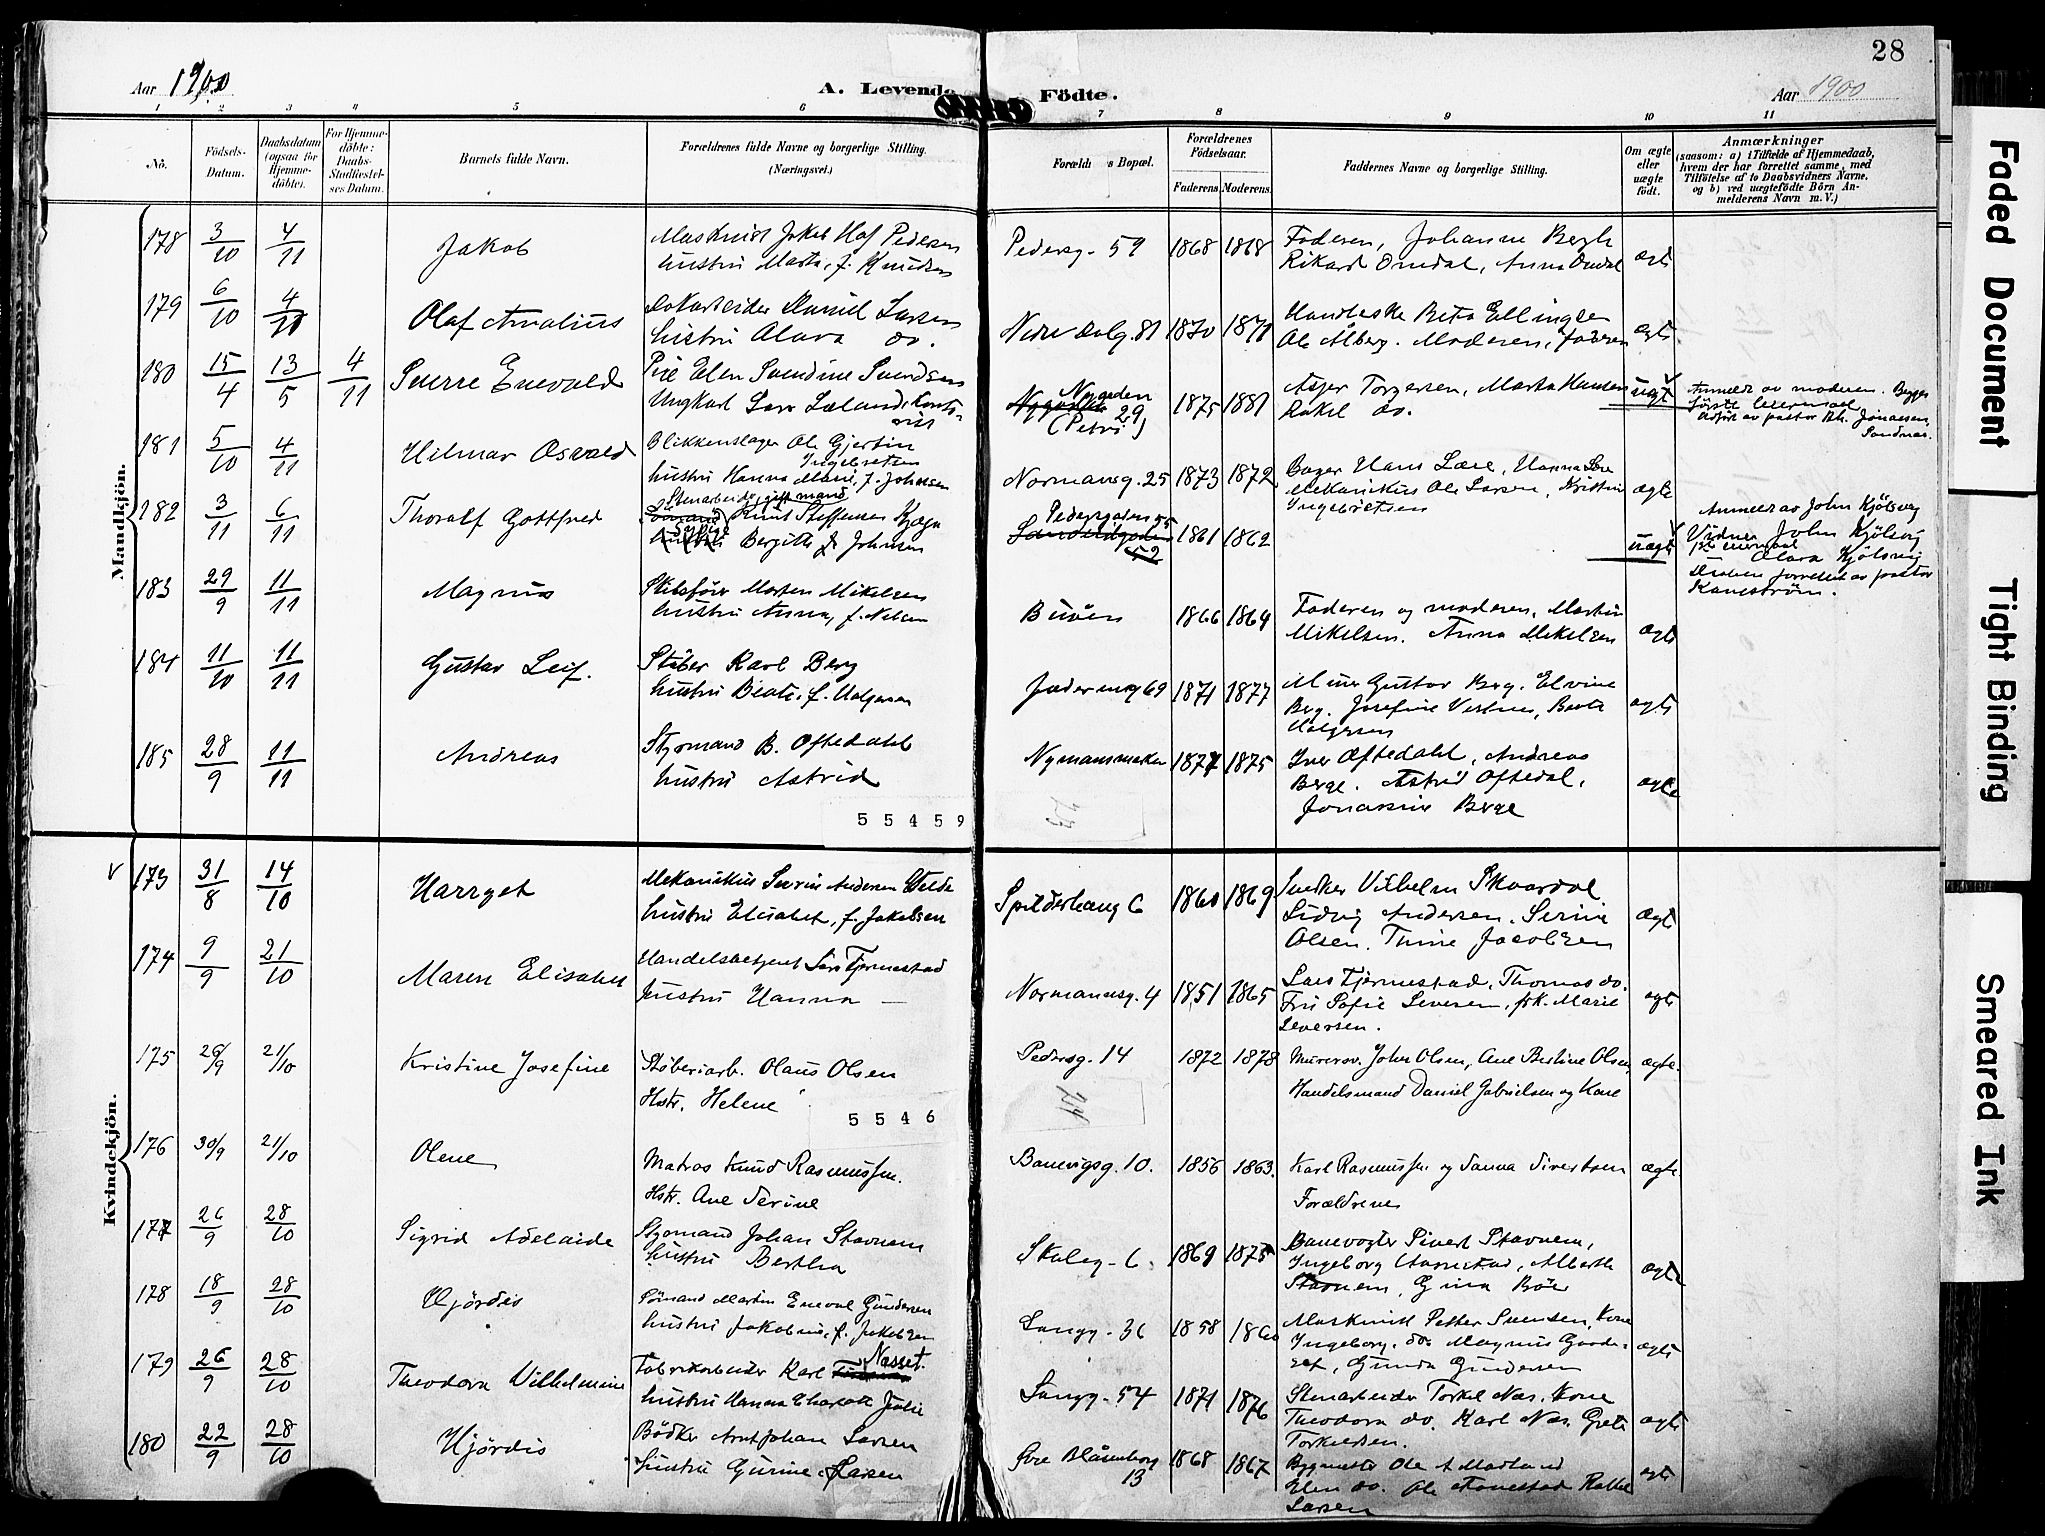 28
Aar 1900
A. Levende Födte.
Aar 1900
1 2 3 4 5 6 7 8 9 10 11
No.
Födsels-
Datum.
Daabsdatum
(ogsaa for
Hjemme-
döbte).
For Hjemme-
döbte:
Daabs-
Stadfæstel-
ses Datum.
Barnets fulde Navn.
Forældrenes fulde Navne og borgerlige Stilling.
(Næringsvei.)
Forældr s Bopæl.
Forældrenes
Födselsaar.
Faderens. Moderens.
Faddernes Navne og borgerlige Stilling.
Om ægte
eller
uægte
födt.
Anmærkninger
(saasom: a) i Tilfælde af Hjemmedaab,
hvem der har forrettet samme, med
Tilföielse af to Daabsvidners Navne,
og b) ved uægtefödte Börn An-
melderens Navn m. V.)
Mandkjön.
178 3/10 4/11 Jakob
Maskinist Jakob Pedersen
hustru Marta, f. Knudsen
Pedersg. 59 1868 1868
Faderen, Johanne Bergh
Rikard Omdal, Anna Omdal
ægte
179 6/10 4/11 Olaf Amalius
Daniel Larsen
hustru Olava do.
Nedre Dalg. 81 1870 1871
Ellingsen
Ole Ålberg. Moderen, Faderen
ægte
180 15/4 13/5 4/11 Sverre Enevald
Pige Elen Svendine Svendsen
Ungkarl Lars Læland, Kontorist
Nygaden
29
(Petri)
1875 1881
Asjer Torgersen, Marta Hansen
Rakel do.
uægte
Anmeldt av moderen. Begges
første leiermaal
av pastor Jonassen,
Sandnes.
181 5/10 4/11 Hilmar Osvald
Blikkenslager Ole Gjertin
Ingebretsen
hustru Hanna Marie, f. Johnsen
Normansg. 25 1873 1872
Bager Hans Lære, Hanna Lære
Mekanikus Ole Larsen, Kristine
Ingebretsen
ægte
182 3/11 6/11 Thoralf Gottfred
Stenarbeider, gift mand,
Knut Steffensen
Bergitte Johnsen
Pedersgaden 55
52
1861 1862
uægte
Anmeldt av John Kjölsvig
Vidner John Kjölsvig
Olava Kjölsvig
Daaben forrettet av pastor
Kaneström.
183 29/9 11/11 Magnus
Skibsförer Morten Mikelsen
hustru Anna, f. Nelsen
Buöen 1866 1864
Faderen og moderen, Martin
Mikelsen. Anna Mikelsen
ægte
184 11/10 11/11 Gustav Leif.
Stöber Karl Berg
hustru Beate, f. Halgersen
Jæderveig 69 1871 1877
Gustav Berg. Elvine
Berg. Josefine Vestnes, Berte
Halgersen
ægte
185 28/9 11/11 Andreas
Styrmand B. Oftedahl
hustru Astrid
Nymansmarken 1871 1875
Iver Oftedahl, Andreas
Berge. Astrid Oftedal,
Jonassine Berge
ægte
55459
Kvindekjön.
173 31/8 14/10 Harryet
Mekanikus Severin Andersen
hustru Elisabet, f. Jakobsen
Spilderhaug 6 1860 1869
Snedker Vilhelm Skaardal
Ludvig Andersen. Serine
Olsen. Thine Jacobsen
ægte
174 9/9 21/10 Maren Elisabet
Handelsbetjent Lars Tjermestad
hustru Hanna —
Normannsg. 4 1851 1865
Lars Tjermestad, Thomas do.
Fru Sofie Seversen, frk. Marie
Seversen.
ægte
175 26/9 21/10 Kristine Josefine
Støberiarb. Olaus Olsen
Hstr. Helene
Pedersg. 14 1872 1878
Murersv. John Olsen, Ane Bertine Olsen,
Handelsmand Daniel Gabrielsen og Kone
ægte.
5546
176 30/9 21/10 Olene
Matros Knud Rasmussen.
Hstr. Ane Serine
Banevigsg. 10. 1856 1863.
Karl Rasmussen og Sanna Sivertsen
Forældrene
ægte
177 26/9 28/10 Sigrid Adelaide
Styrmand Johan Stavnem
hustru Bertha
Skoleg. 6. 1869 1875
Banevogter Sivert Stavnem,
Ingeborg Aarrestad, Alberth
Stavnem, Gina Böe
ægte
178 18/9 28/10 Hjördis
Sömand Martin Eneval Gundersen
hustru Jakobine, f. Jakobsen
Langg. 36 1858 1860
Maskinist Petter Svensen, Kone
Ingeborg. do. Magnus
Gunda Gundersen
ægte
179 26/9 28/10 Theodora Vilhelmine
Fabrikarbeider Karl Næsset.
hustru Hanna Charlotte Julie
Langg. 54 1871 1876
Stenarbeider Torkel Næs. Kone
Theodora do. Karl Næs. Grete
Torkildsen.
ægte
180 22/9 28/10 Hjördis
Bödker Arnt Johan Larsen
hustru Gurine Larsen
Övre Blåsenborg
13
1868 1867
Bygmester Ole A Marland
Elen do. Ole Tonestad Rakel
Larsen
ægte
Faded Document
Tight Binding
Smeared Ink